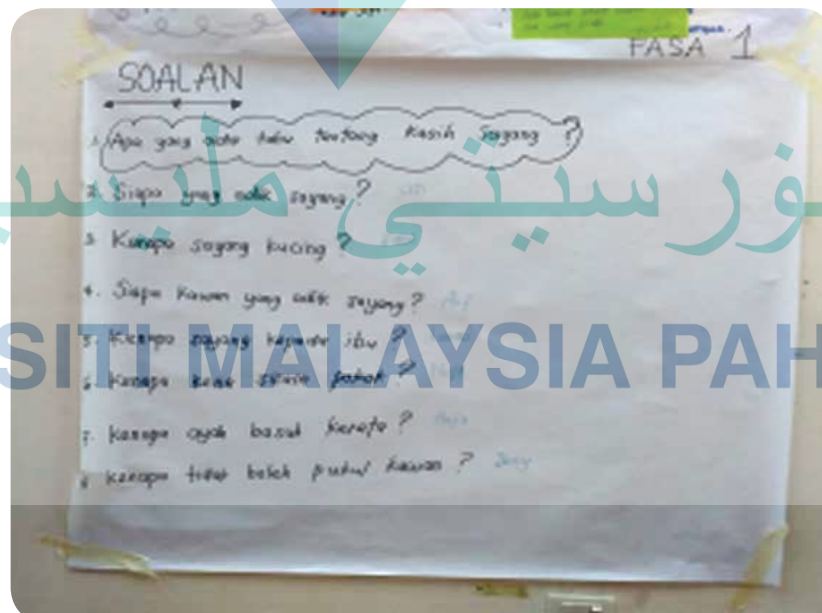 FASA 1
SOALAN
1. Apa yang adik tahu tentang Kasih Sayang?
2. Siapa yang adik sayang?
3. Kenapa sayang kucing?
4. Siapa Kawan yang adik sayang?
5. Kenapa sayang kepada ibu?
6. Kenapa kena siram pokok?
7. Kenapa ayah basuh kereta?
8. Kenapa tidak boleh pukul kawan?
SITI MALAYSIA PAH